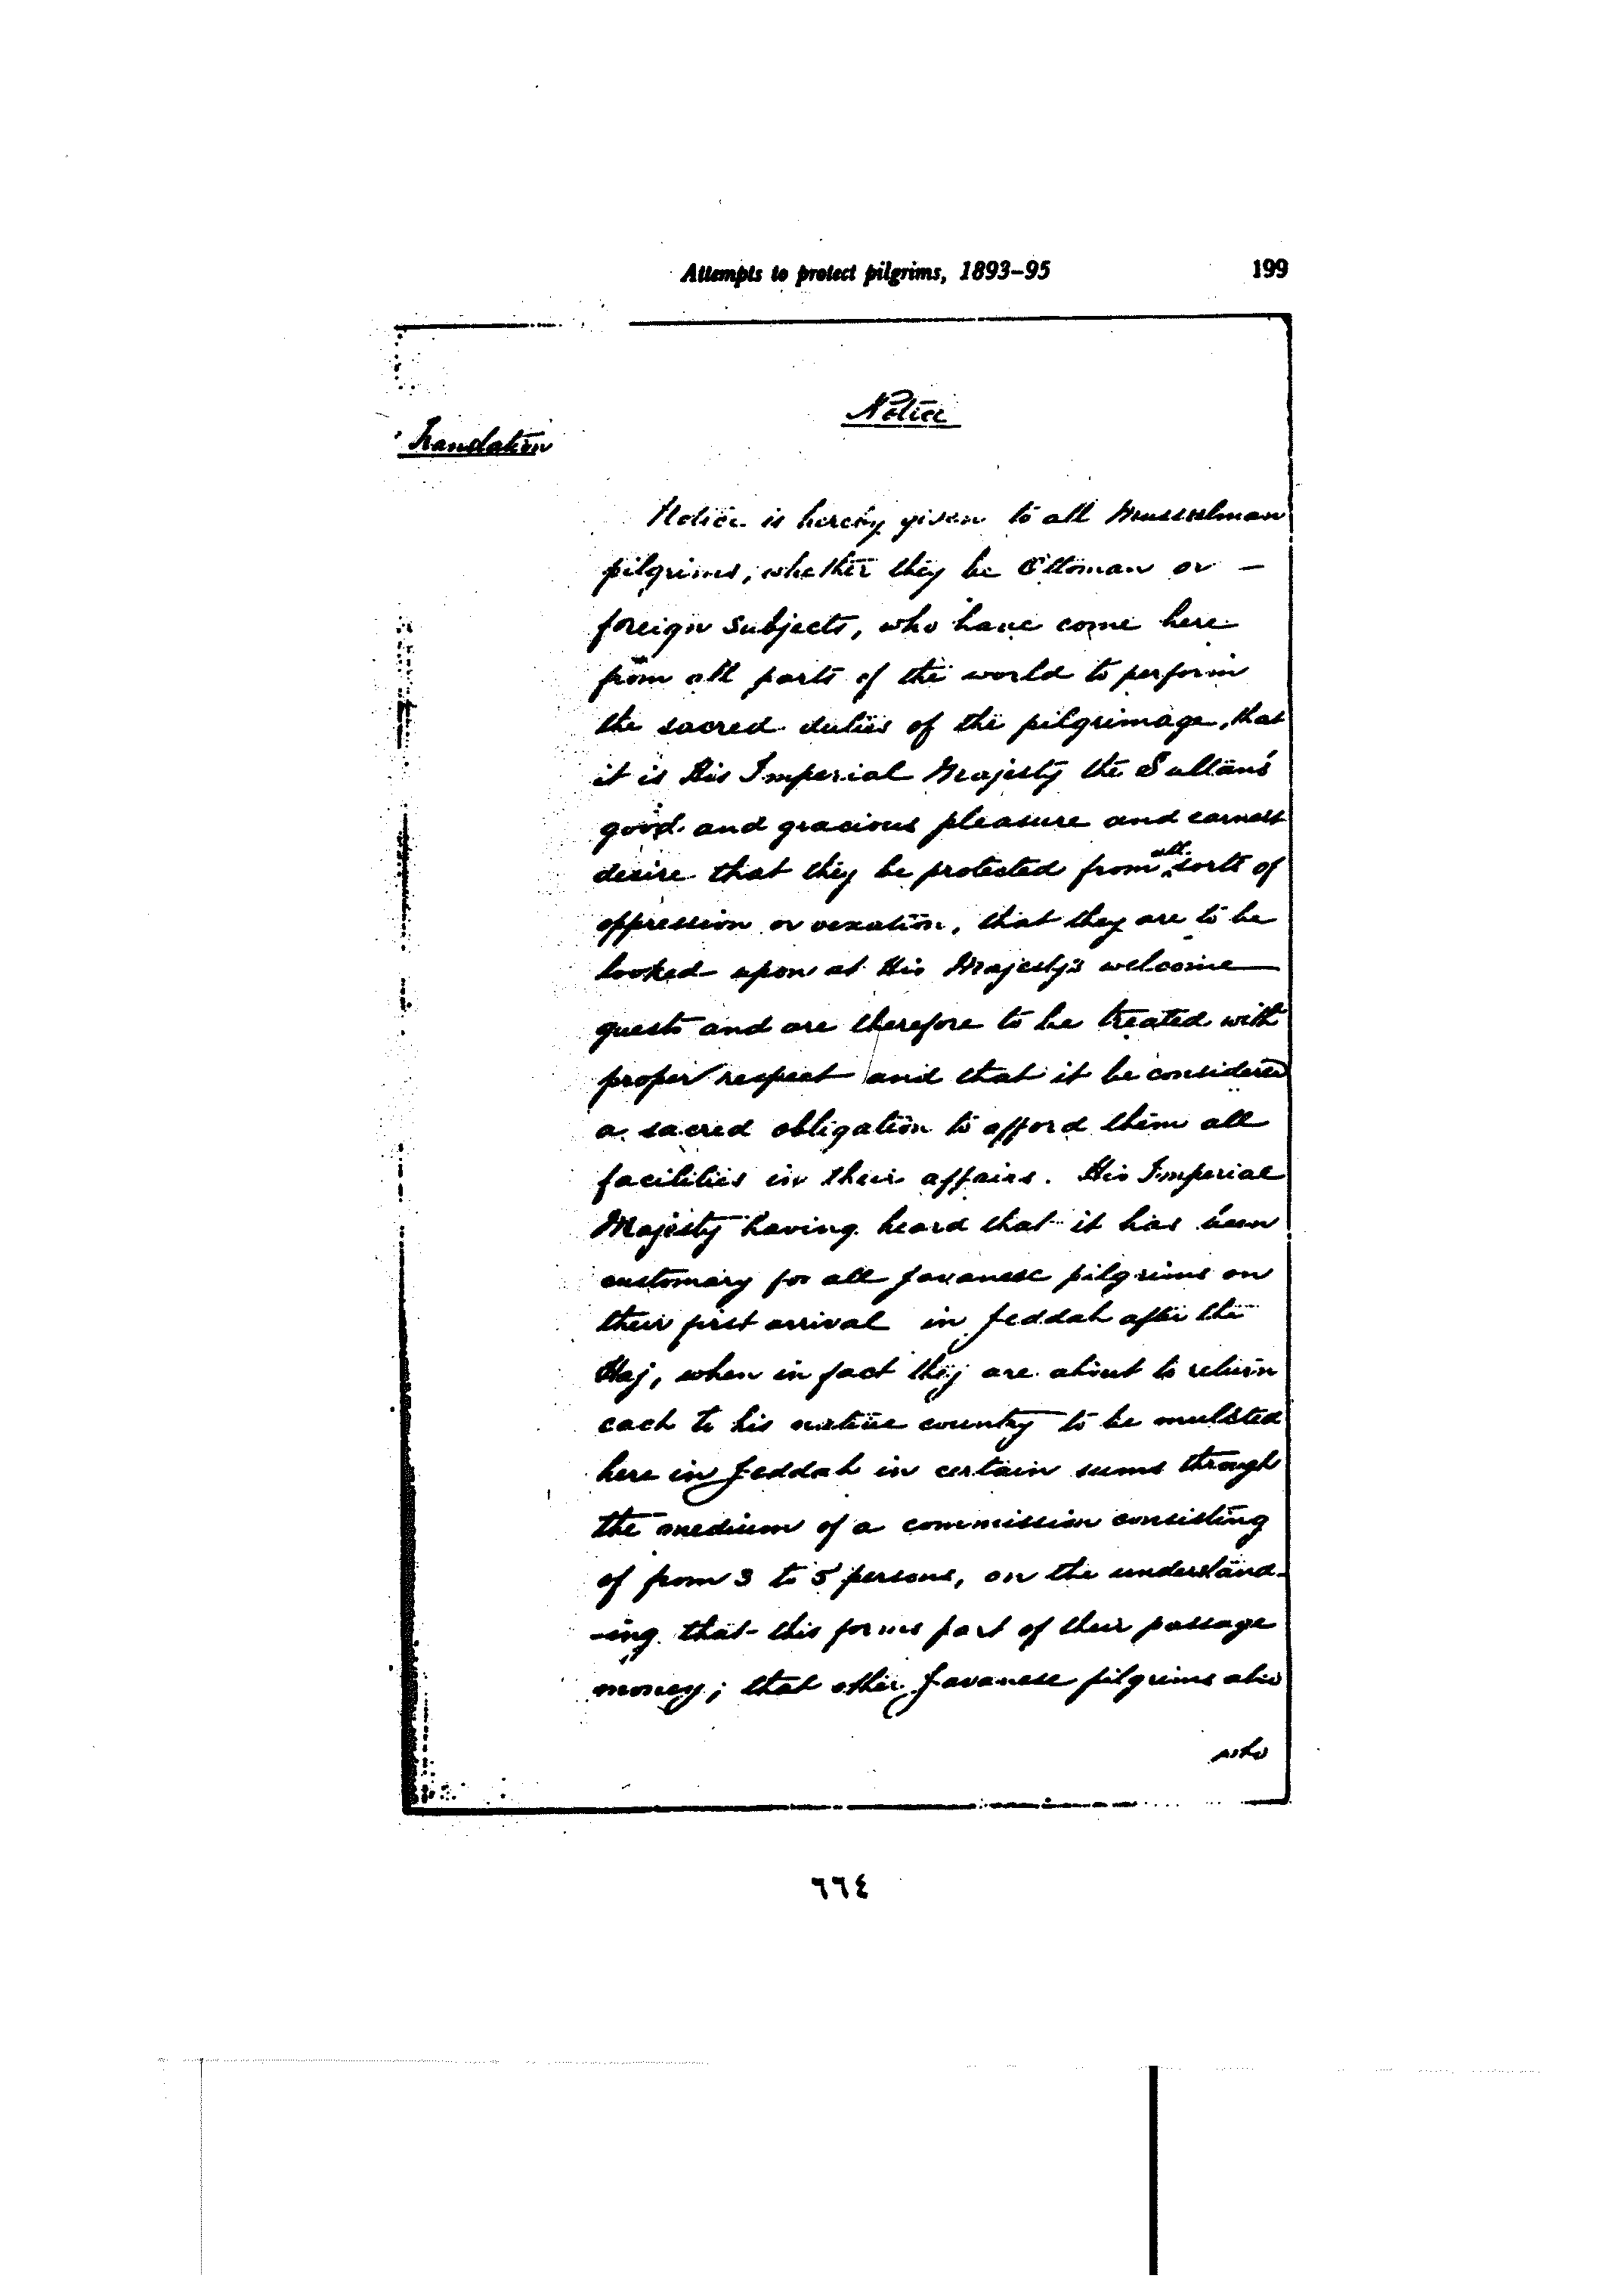 Attempts to protect pilgrims, 1893–95 199
Notice
Translation
Notice is hereby given to all Mussulman
pilgrims, whether they be Ottoman or –
foreign subjects, who have come here
from all parts of the world to perform
the sacred duties of the pilgrimage, that
it is His Imperial Majesty the Sultan's
good and gracious pleasure and earnest
desire that they be protected from all sorts of
oppression or vexation, that they are to be
looked upon as His Majesty's welcome
guests and are therefore to be treated with
proper respect and that it be considered
a sacred obligation to afford them all
facilities in their affairs. His Imperial
Majesty having heard that it has been
customary for all Javanese pilgrims on
their first arrival in Jeddah after the
Haj, when in fact they are about to return
each to his native country to be mulcted
here in Jeddah in certain sums through
the medium of a commission consisting
of from 3 to 5 persons, on the understand-
-ing that this forms part of their passage
money; that other Javanese pilgrims also
who
٦٦٤